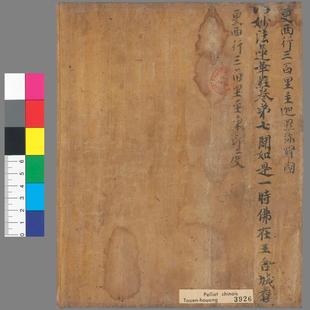 更西行三百里至迦濕弥羅國
妙法蓮華經卷第七聞如是一時佛在王舍城
更西行三百里至
Pelliot chinois
Touen-houang 3926